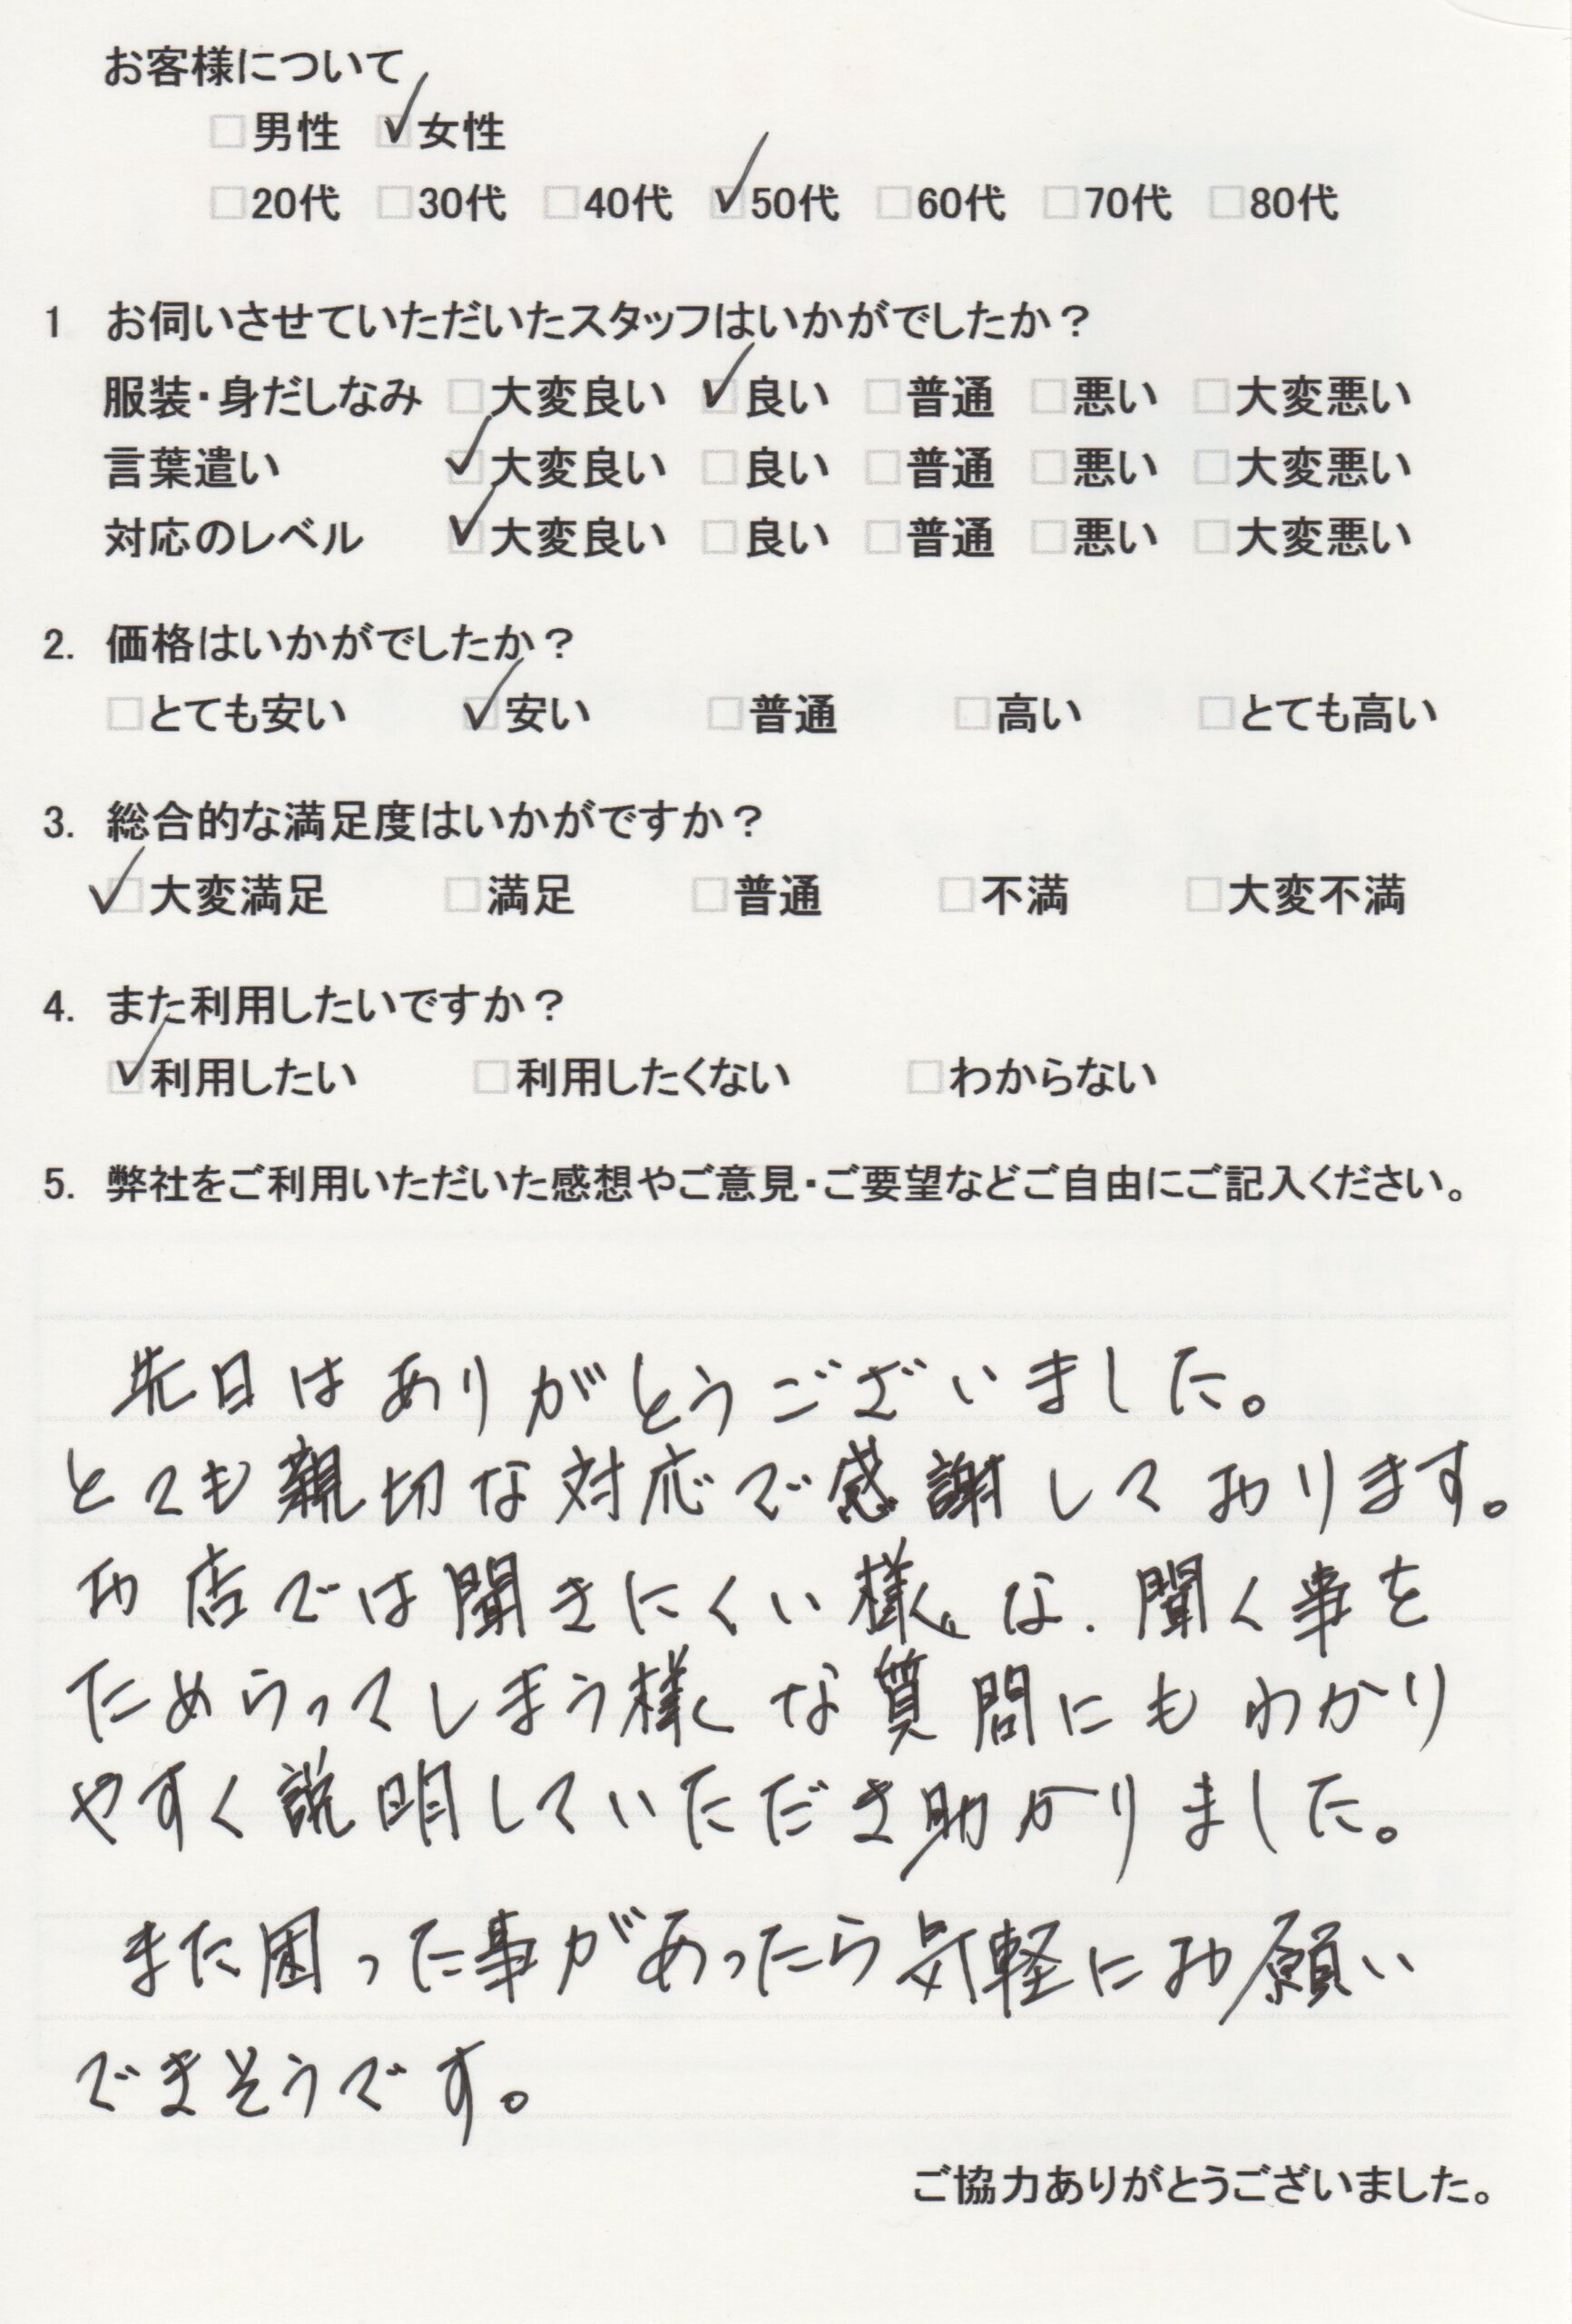 お客様について
□男性 ☑女性
□20代 □30代 □40代 ☑50代 □60代 □70代 □80代
1 お伺いさせていただいたスタッフはいかがでしたか？
服装・身だしなみ □大変良い ☑良い □普通 □悪い □大変悪い
言葉遣い ☑大変良い □良い □普通 □悪い □大変悪い
対応のレベル ☑大変良い □良い □普通 □悪い □大変悪い
2. 価格はいかがでしたか？
□とても安い ☑安い □普通 □高い □とても高い
3. 総合的な満足度はいかがですか？
☑大変満足 □満足 □普通 □不満 □大変不満
4. また利用したいですか？
☑利用したい □利用したくない □わからない
5. 弊社をご利用いただいた感想やご意見・ご要望などご自由にご記入ください。
先日はありがとうございました。
とても親切な対応で感謝しております。
お店では聞きにくい様な、聞く事を
ためらってしまう様な質問にもわかり
やすく説明していただき助かりました。
また困った事があったら気軽にお願い
できそうです。
ご協力ありがとうございました。